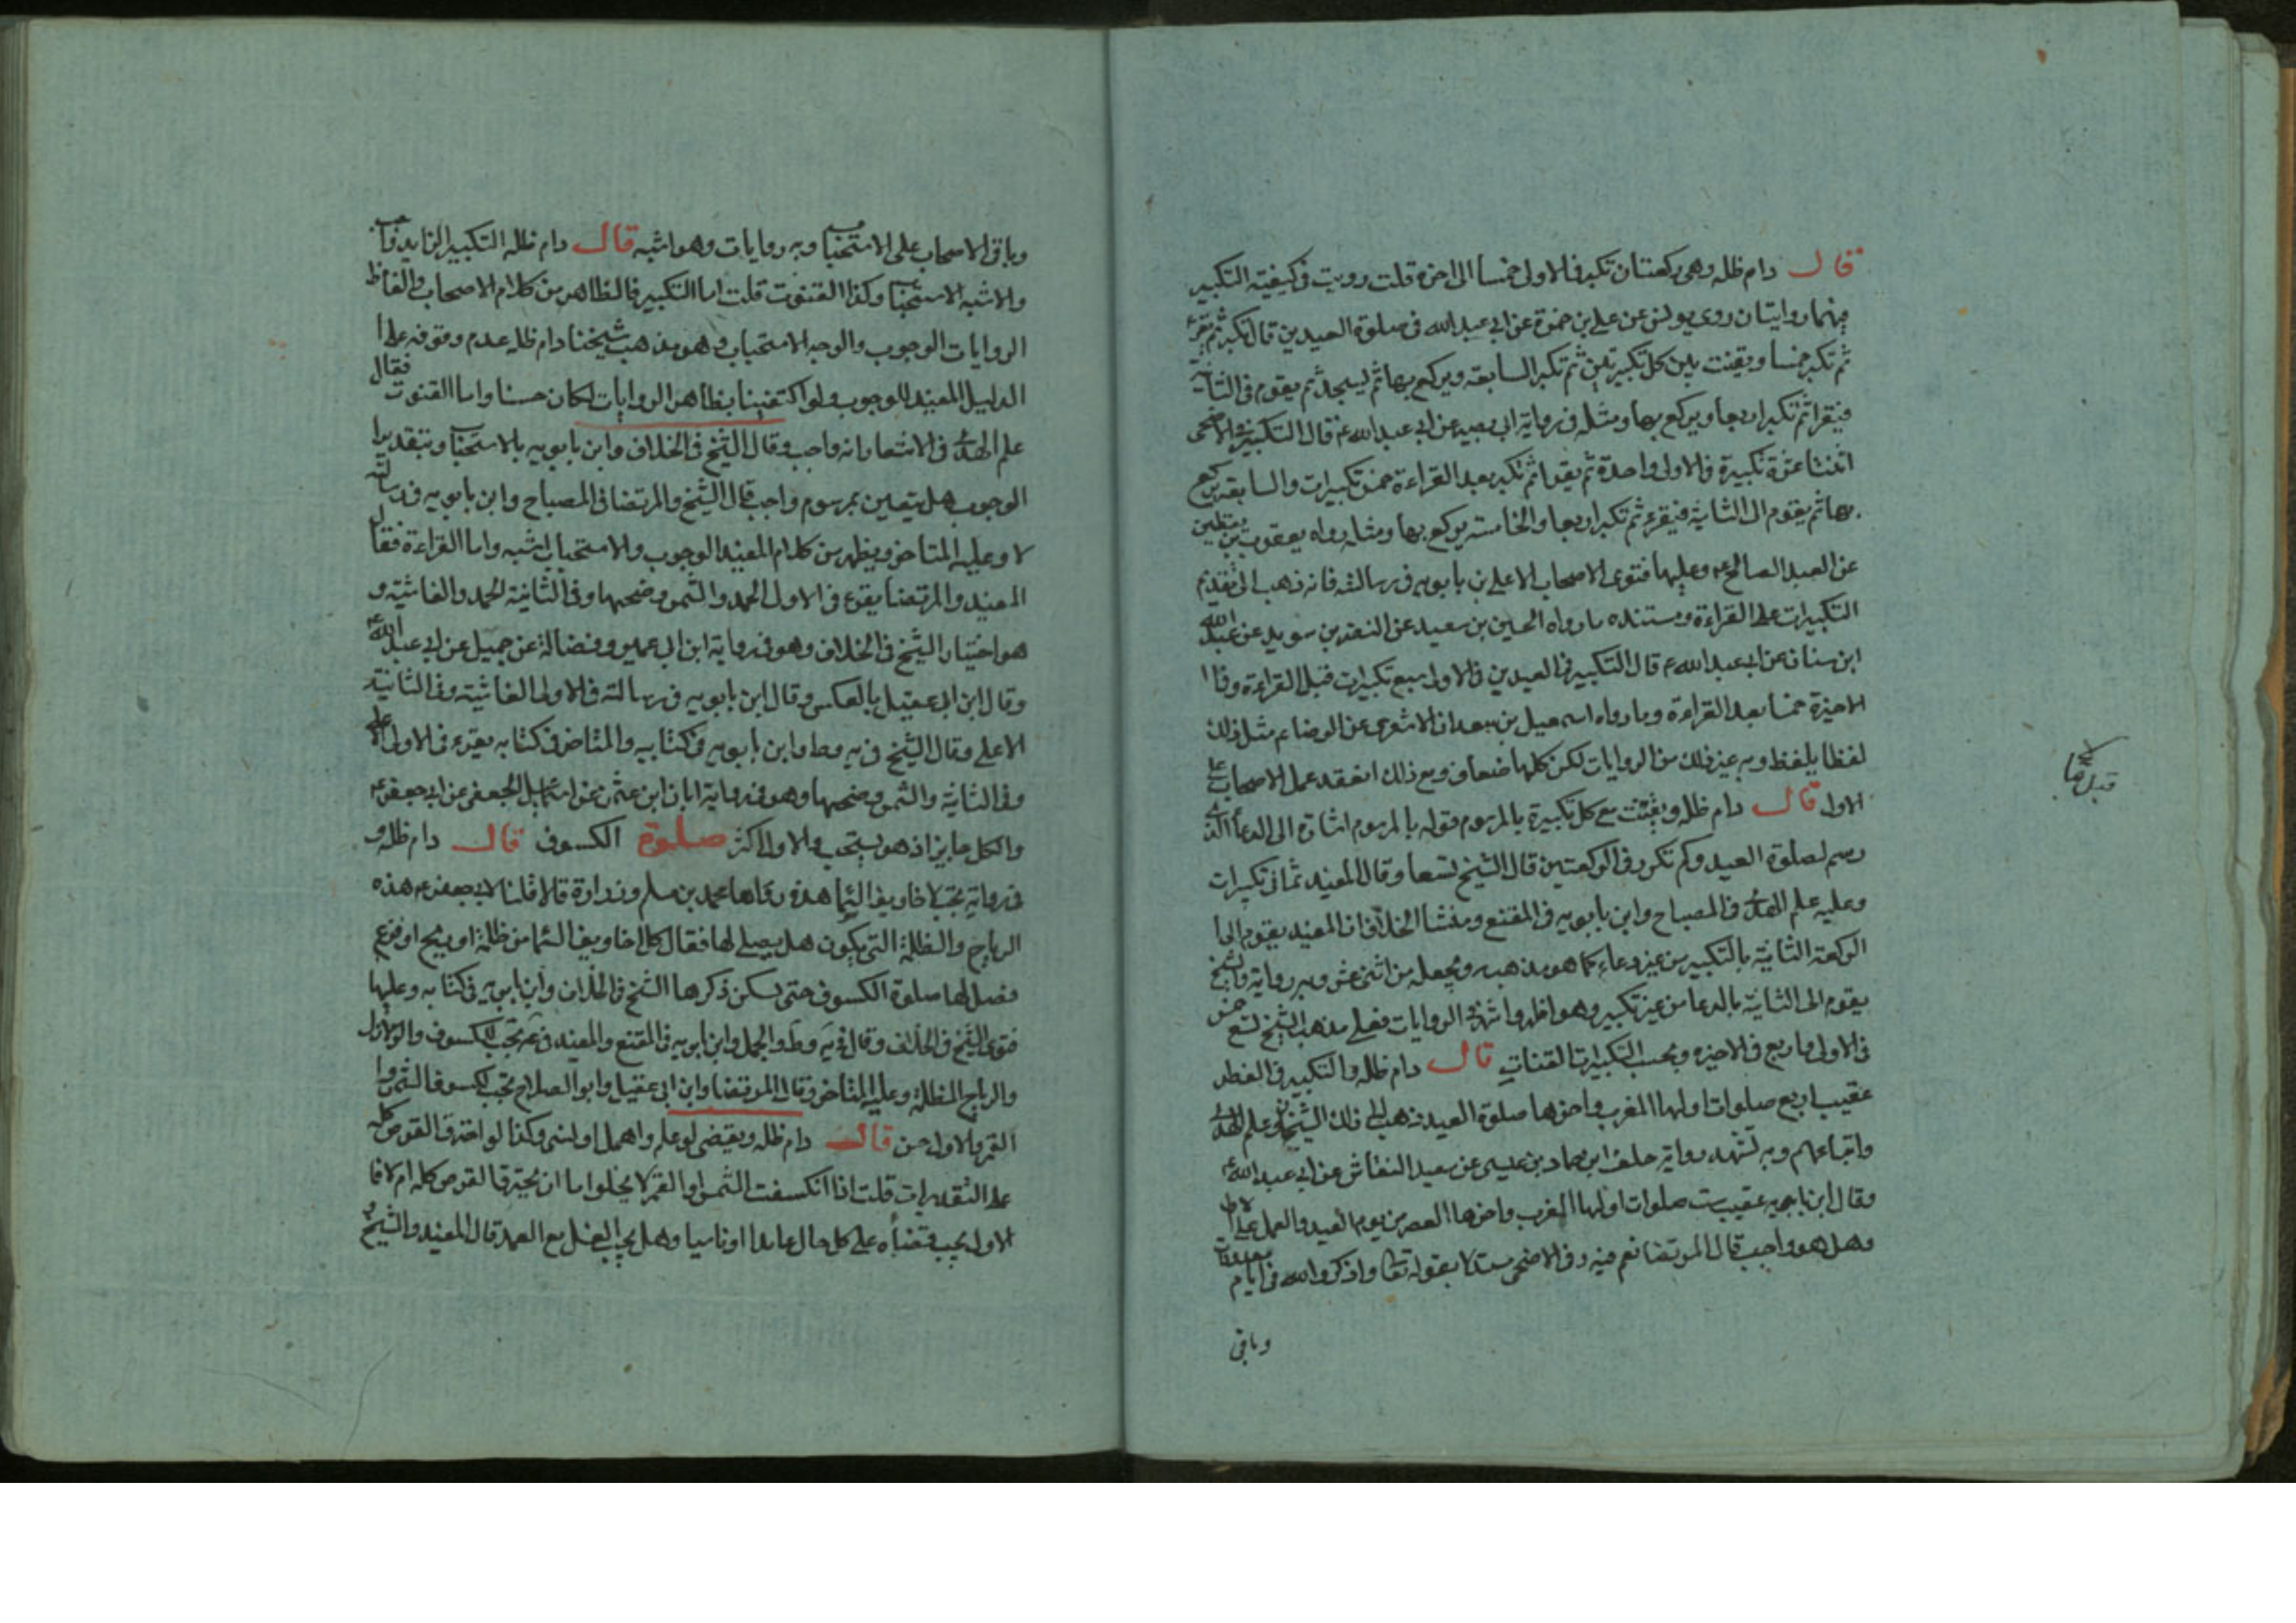 قال دام ظله وهى ركعتان تكبر فى الاولى خمسا الى اخره قلت رويت فى كيفية التكبير
فيهما روايتان روى يونس عن على بن حمزة عن ابى عبد الله فى صلوة العيدين قال تكبر ثم تقرء
ثم تكبر خمسا ويقنت بين كل تكبيرتين ثم تكبر السابعة ويركع بها ثم يسجد ثم يقوم فى الثانية
فيقرا ثم تكبر اربعا ويركع بها ومثله فى رواية ابى بصير عن ابى عبد الله ع قال التكبير فى والاضحى
اثنتا عشرة تكبيرة فى الاولى واحدة ثم يقرا ثم تكبر بعد القراءة خمس تكبيرات والسابعة يركع
بها ثم يقوم الى الثانية فيقرء ثم تكبر اربعا والخامسة يركع بها ومثله رواه يعقوب بن يقطين
عن العبد الصالح ع وعليها فتوى الاصحاب الا على بن بابويه فى رسالته فانه ذهب الى تقديم
التكبيرات على القراءة ومستنده ما رواه الحسين بن سعيد عن النضر بن سويد عن عبد الله
ابن سنان عن ابى عبد الله ع قال التكبير فى العيدين فى الاولى سبع تكبيرات قبل القراءة وفى ا
لاخيرة خمسا بعد القراءة وما رواه اسمعيل بن سعد الاشعرى عن الرضا ع مثل ذلك
لفظا بلفظ وبه غير ذلك من الروايات لكن كلها ضعاف ومع ذلك انعقد عمل الاصحاب على
الاول قال دام ظله ويقنت مع كل تكبيرة بالمرسوم قوله بالمرسوم اشارة الى الدعا الذى
رسم لصلوة العيد وكم تكرر فى الركعتين قال الشيخ تسعا وقال المفيد ثمانى تكبيرات
وعليه علم الهدى فى المصباح وابن بابويه فى المقنع ومنشا الخلاف ان المفيد يقوم الى ا
لركعة الثانية بالتكبير من غير دعاء كما هو مذهبه ويجعله من اثنى عشر وبه رواية والشيخ
يقوم الى الثانية بالدعا من غير تكبير وهو اظهر واشهر فى الروايات فعلى مذهب الشيخ تسع خمس
فى الاولى واربع فى الاخيره وبحسب التكبيرات القنات قال دام ظله والتكبير فى الفطر
عقيب اربع صلوات اولها المغرب واخرها صلوة العيد ذهب الى ذلك الشيخان وعلم الهدى
واتباعهم وبه تشهد رواية خلف ابن حماد بن عيسى عن سعيد النقاش عن ابى عبد الله ع
وقال ابن بابويه عقيب ست صلوات اولها المغرب واخرها العصر من يوم العيد والعمل على الاول
وهل هو واجب قال المرتضا نعم فيه وفى الاضحى مستدلا بقوله تعا واذكروا الله فى ايام معدودات
وباقى
وباقى الاصحاب على الاستحباب وبه روايات وهو اشبه قال دام ظله التكبير الزايد واجب
والاشبه الاستحباب وكذا القنوت قلت اما التكبير فالظاهر من كلام الاصحاب والفاظ
الروايات الوجوب والوجه الاستحباب وهو مذهب شيخنا دام ظله عدم وقوفه على ا
لدليل المفيد للوجوب ولو اكتفينا بظاهر الروايات لكان حسنا واما القنوت فقال
علم الهدى فى الانتصار انه واجب وقال الشيخ فى الخلاف وابن بابويه بالاستحباب وبتقدير ا
لوجوب هل يتعين بمرسوم واجب قال الشيخ والمرتضا فى المصباح وابن بابويه فى رسالته
لا وعليه المتاخر ويظهر من كلام المفيد الوجوب والاستحباب اشبه واما القراءة فقال
المفيد والمرتضا يقرء فى الاولى الحمد والشمس وضحيها وفى الثانية الحمد والغاشية و
هو اختيار الشيخ فى الخلاف وهو فى رواية ابن ابى عمير وفضالة عن جميل عن ابى عبد الله ع
وقال ابن ابى عقيل بالعكس وقال ابن بابويه فى رسالته فى الاولى الغاشية وفى الثانية
الاعلى وقال الشيخ فى يه وط وابن بابويه فى كتابيه والمتاخر فى كتابه يقرء فى الاولى الاعلى
وفى الثانية والشمس وضحيها وهو فى رواية ابان ابن عثمن عن اسمعيل الجعفى عن ابى جعفر ع
والكل جايز اذ هو يستحب والاول اكثر صلوة الكسوف قال دام ظله و
فى رواية تجب لاخاويف السما هذه رواها محمد بن مسلم وزرارة قالا قلنا لابى جعفر ع هذه
الرياح والظلم التى يكون هل يصلى لها فقال كل اخاويف السما من ظلمة او ريح او فزع
فصل لها صلوة الكسوف حتى يسكن ذكرها الشيخ فى الخلاف وابن بابويه فى كتابه وعليها
فتوى الشيخ فى الخلاف وقال فى يه وط والجمل وابن بابويه فى المقنع والمفيد فى تجب للكسوف والزلازل
والرياح المظلمة وعليه المتاخر وقال المرتضا وابن ابى عقيل وابو الصلاح تجب لكسوف الشمس وا
لقمر والاول حسن قال دام ظله ويقضى لو علم واهمل او نسى وكذا لو احترق القرص كله
على التقديرات قلت اذا انكسفت الشمس او القمر لا يخلوا اما ان يحترق القرص كله ام لا فا
لاول يجب قضاه على كل حال عامدا او ناسيا وهل يجب الغسل مع العمد قال المفيد والشيخ